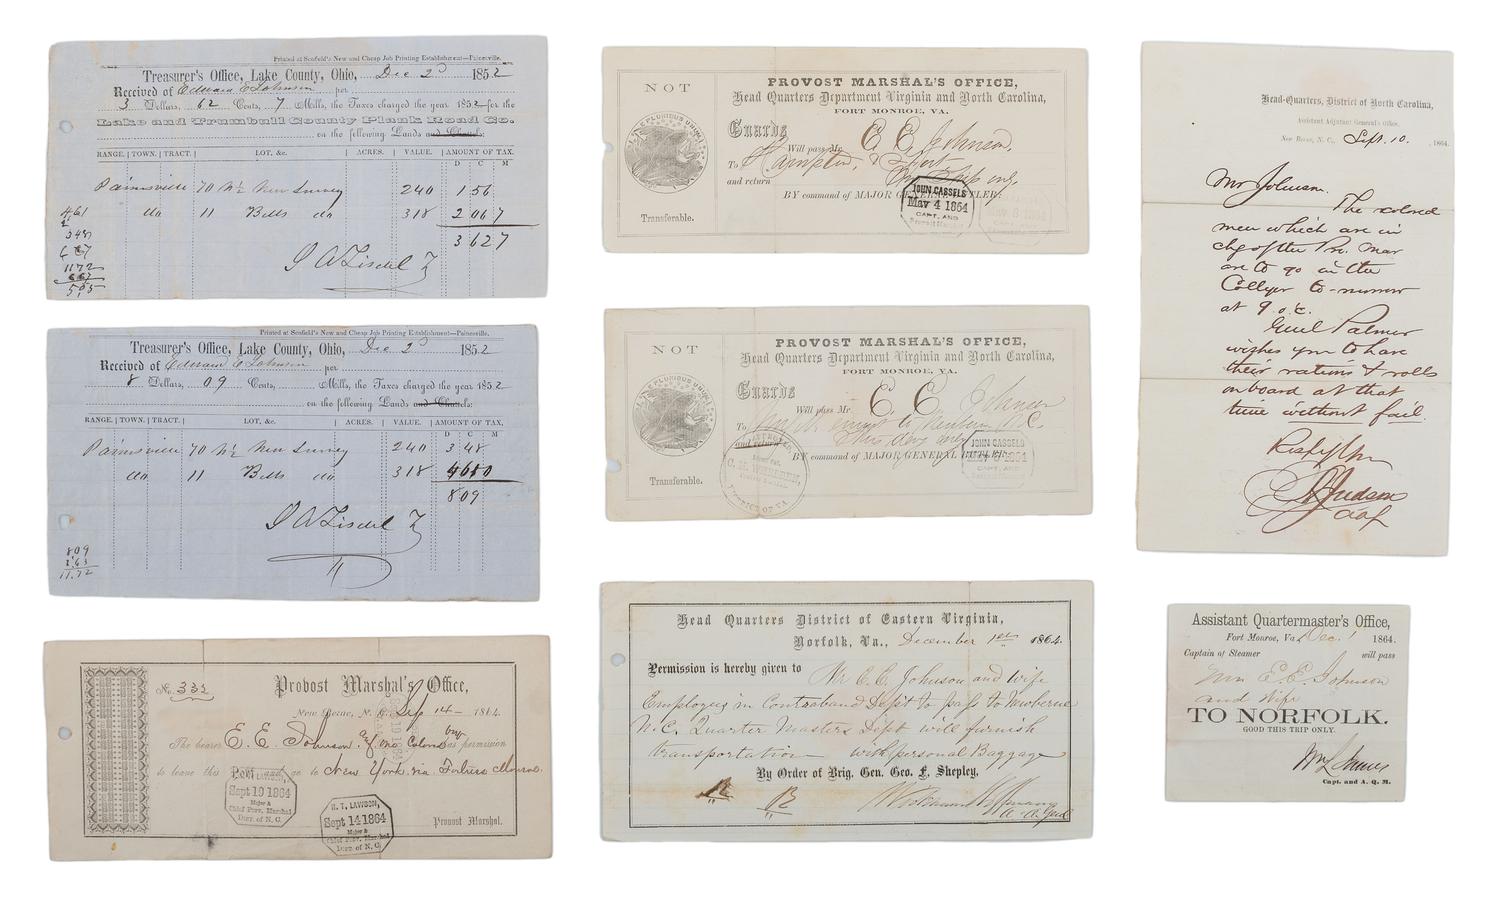 Printed at Scofield's New and Cheap Job Printing Establishment—Painesville.
Treasurer's Office, Lake County, Ohio, Dec 2d 1852
Received of Edward E Johnson per
3 Dollars, 62 Cents, 7 Mills, the Taxes charged the year 1852 for the
Lake and Trumbull County Plank Road Co.
on the following Lands and Chattels:
RANGE. TOWN. TRACT. LOT, &c. ACRES. VALUE. AMOUNT OF TAX.
D C M
Painesville 70 N½ New Survey 240 1 56
do 11 Betts do 318 2 06 7
3 62 7
461
348
1172
5,05
Printed at Scofield's New and Cheap Job Printing Establishment—Painesville.
Treasurer's Office, Lake County, Ohio, Dec 2d 1852
Received of Edward E Johnson per
8 Dollars, 09 Cents, Mills, the Taxes charged the year 1852
on the following Lands and Chattels:
RANGE. TOWN. TRACT. LOT, &c. ACRES. VALUE. AMOUNT OF TAX.
D C M
Painesville 70 N½ New Survey 240 3 48
do 11 Betts do 318
8 09
809
3,63
11,72
No. 332 Provost Marshal's Office,
New Berne, N. C. Sep 14 1864.
The bearer E. E. Johnson has permission
to leave this Port and go to New York via Fortress Monroe.
LAWSON,
Sept 19 1864
Major &
Chief Prov. Marshal
Dist. of N. C.
H. T. LAWSON,
Sept 14 1864
Major &
Chief Prov. Marshal
Dist. of N. C.
Provost Marshal.
NOT
Transferable.
E PLURIBUS UNUM
PROVOST MARSHAL'S OFFICE,
Head Quarters Department Virginia and North Carolina,
FORT MONROE, VA.
Guards
Will pass Mr. E. E. Johnson,
To Hampton, &
and return
BY command of MAJOR GENERAL BUTLER:
JOHN CASSELS
May 4 1864
CAPT. AND
Provost Marshal
NOT
Transferable.
E PLURIBUS UNUM
PROVOST MARSHAL'S OFFICE,
Head Quarters Department Virginia and North Carolina,
FORT MONROE, VA.
Guards
Will pass Mr. E. E. Johnson
To Newbern N.C.
and return this day only
BY command of MAJOR GENERAL BUTLER:
JOHN CASSELS
1864
CAPT. AND
Provost Marshal
Head Quarters District of Eastern Virginia,
Norfolk, Va., December 1st 1864.
Permission is hereby given to Mr E. E. Johnson and wife
Employees in Contraband Dept to pass to Newberne
N.C. Quarter Masters Dept will furnish
transportation with personal Baggage
By Order of Brig. Gen. Geo. F. Shepley,
Head-Quarters, District of North Carolina,
Assistant Adjutant General's Office,
New Berne, N. C., Sept. 10. 1864.
Mr Johnson.
The colored
men which are in
chg of the Pro. Mar
are to go in the
Collyer to-morrow
at 9 o.c.
Genl Palmer
wishes you to have
their rations & rolls
on board at that
time without fail.
Respfy Yr
Judson
AAG
Assistant Quartermaster's Office,
Fort Monroe, Va., Dec. 1 1864.
Captain of Steamer will pass
E. E. Johnson
and Wife
TO NORFOLK.
GOOD THIS TRIP ONLY.
Capt. and A. Q. M.